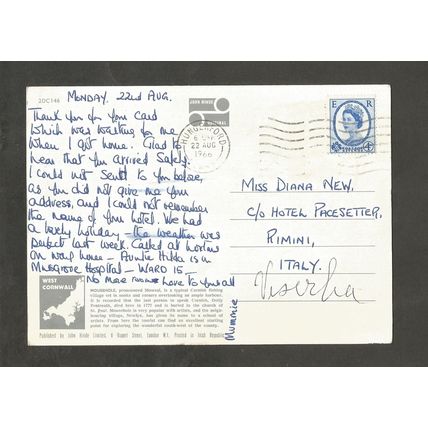 2DC146
MONDAY, 22nd AUG.
Thank you for your card
which was waiting for me
when I got home. Glad to
hear that you arrived safely.
I could not send to you before,
as you did not give me your
address, and I could not remember
the name of your hotel. We had
a lovely holiday - the weather was
perfect last week. Called at
on way home - Auntie Hilda is in
Musgrove Hospital - WARD 15
No more room Love to you all
Mummie
JOHN HINDE
ORIGINAL
HUNGERFORD
22 AUG
1966
E R
MISS DIANA NEW,
C/O HOTEL PACESETTER,
RIMINI,
ITALY.
Viserba
WEST
CORNWALL
MOUSEHOLE, pronounced Mowzal, is a typical Cornish fishing
village set in nooks and corners overlooking an ample harbour.
It is recorded that the last person to speak Cornish, Dolly
Pentreath, died here in 1777 and is buried in the church of
St. Paul. Mousehole is very popular with artists, and the neigh-
bouring village, Newlyn, has given its name to a school of
artists. From here the tourist can find an excellent starting
point for exploring the wonderful south-west of the county.
Published by John Hinde Limited, 6 Rupert Street, London W.1. Printed in Irish Republic